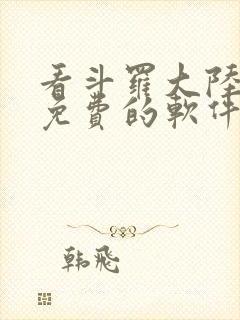 看斗羅大陸
免費的軟件
韩飛